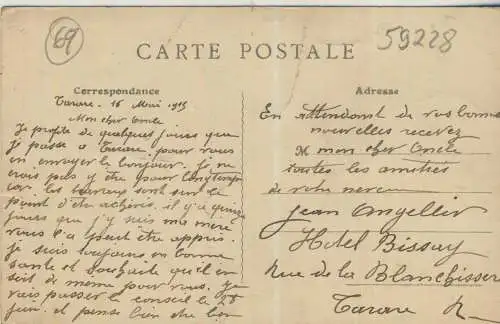 69
59228
CARTE POSTALE
Correspondance
Tarare. 16 Mai 1913
Mon cher Oncle
Je profite de quelques jours que
je passe à Tarare pour vous
en envoyer le bonjour. Je ne
crois pas y être pour longtemps
car les travaux sont sur le
point d'être achevés. il y a quinze
jours que j'y suis ma mère
vous l'a peut être appris.
Je suis toujours en bonne
santé et souhaite qu'il en
soit de même pour vous. Je
vais passer le conseil le 28
juin. et pense bien être bon
Adresse
En attendant de vos bonnes
nouvelles recevez
M mon cher Oncle
toutes les amitiés
de votre neveu
Jean Angellier
Hotel Bissay
Rue de la Blanchisserie
Tarare R